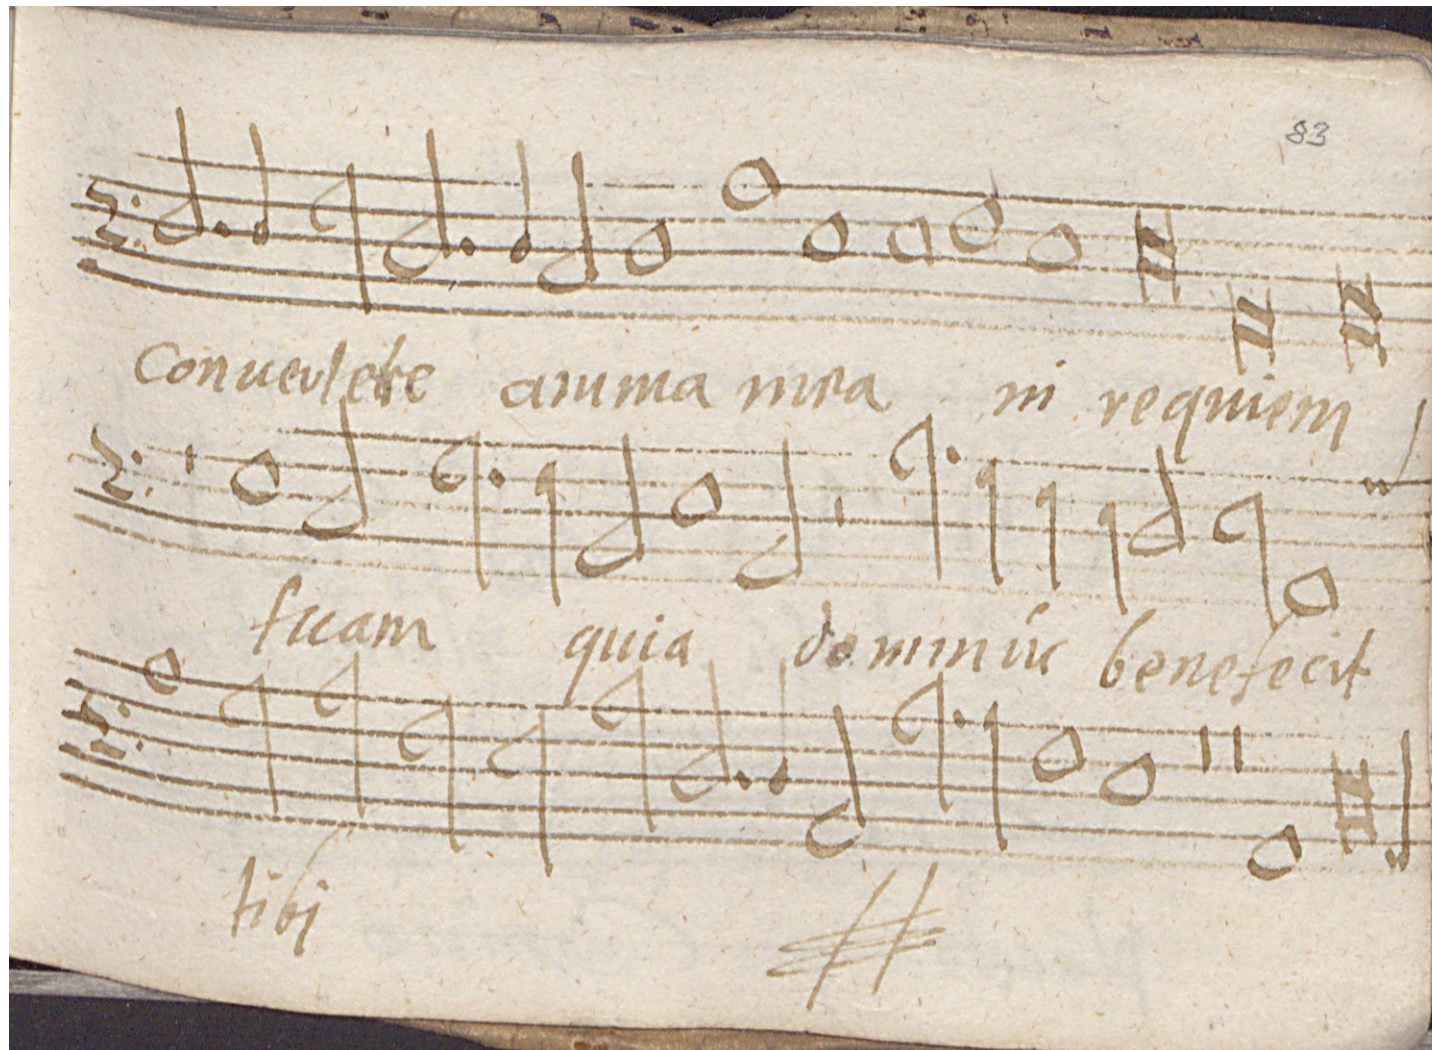 83
Conuertere anima mea in requiem
tuam quia dominus benefecit
tibi